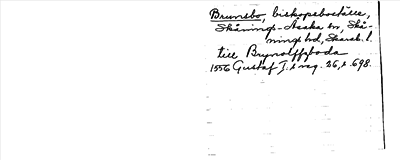 Brunsbo, biskopsboställe,
Skånings-Asaka sn, Skå-
nings hd, Skarab. l.
till Brynolffzboda
1556 Gustaf I:s reg. 26, s. 698.